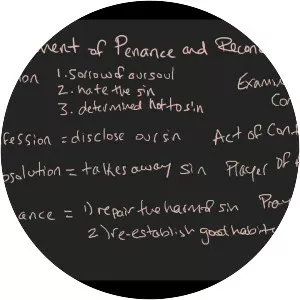 ment of Penance and Recon
ion 1. Sorrow of our soul Exami
2. hate the sin Co
3. determined not to sin
fession = disclose our sin Act of Cont
bsolution = takes away sin Prayer of
ance = 1) repair the harm of sin Pray
2) re-establish good habits